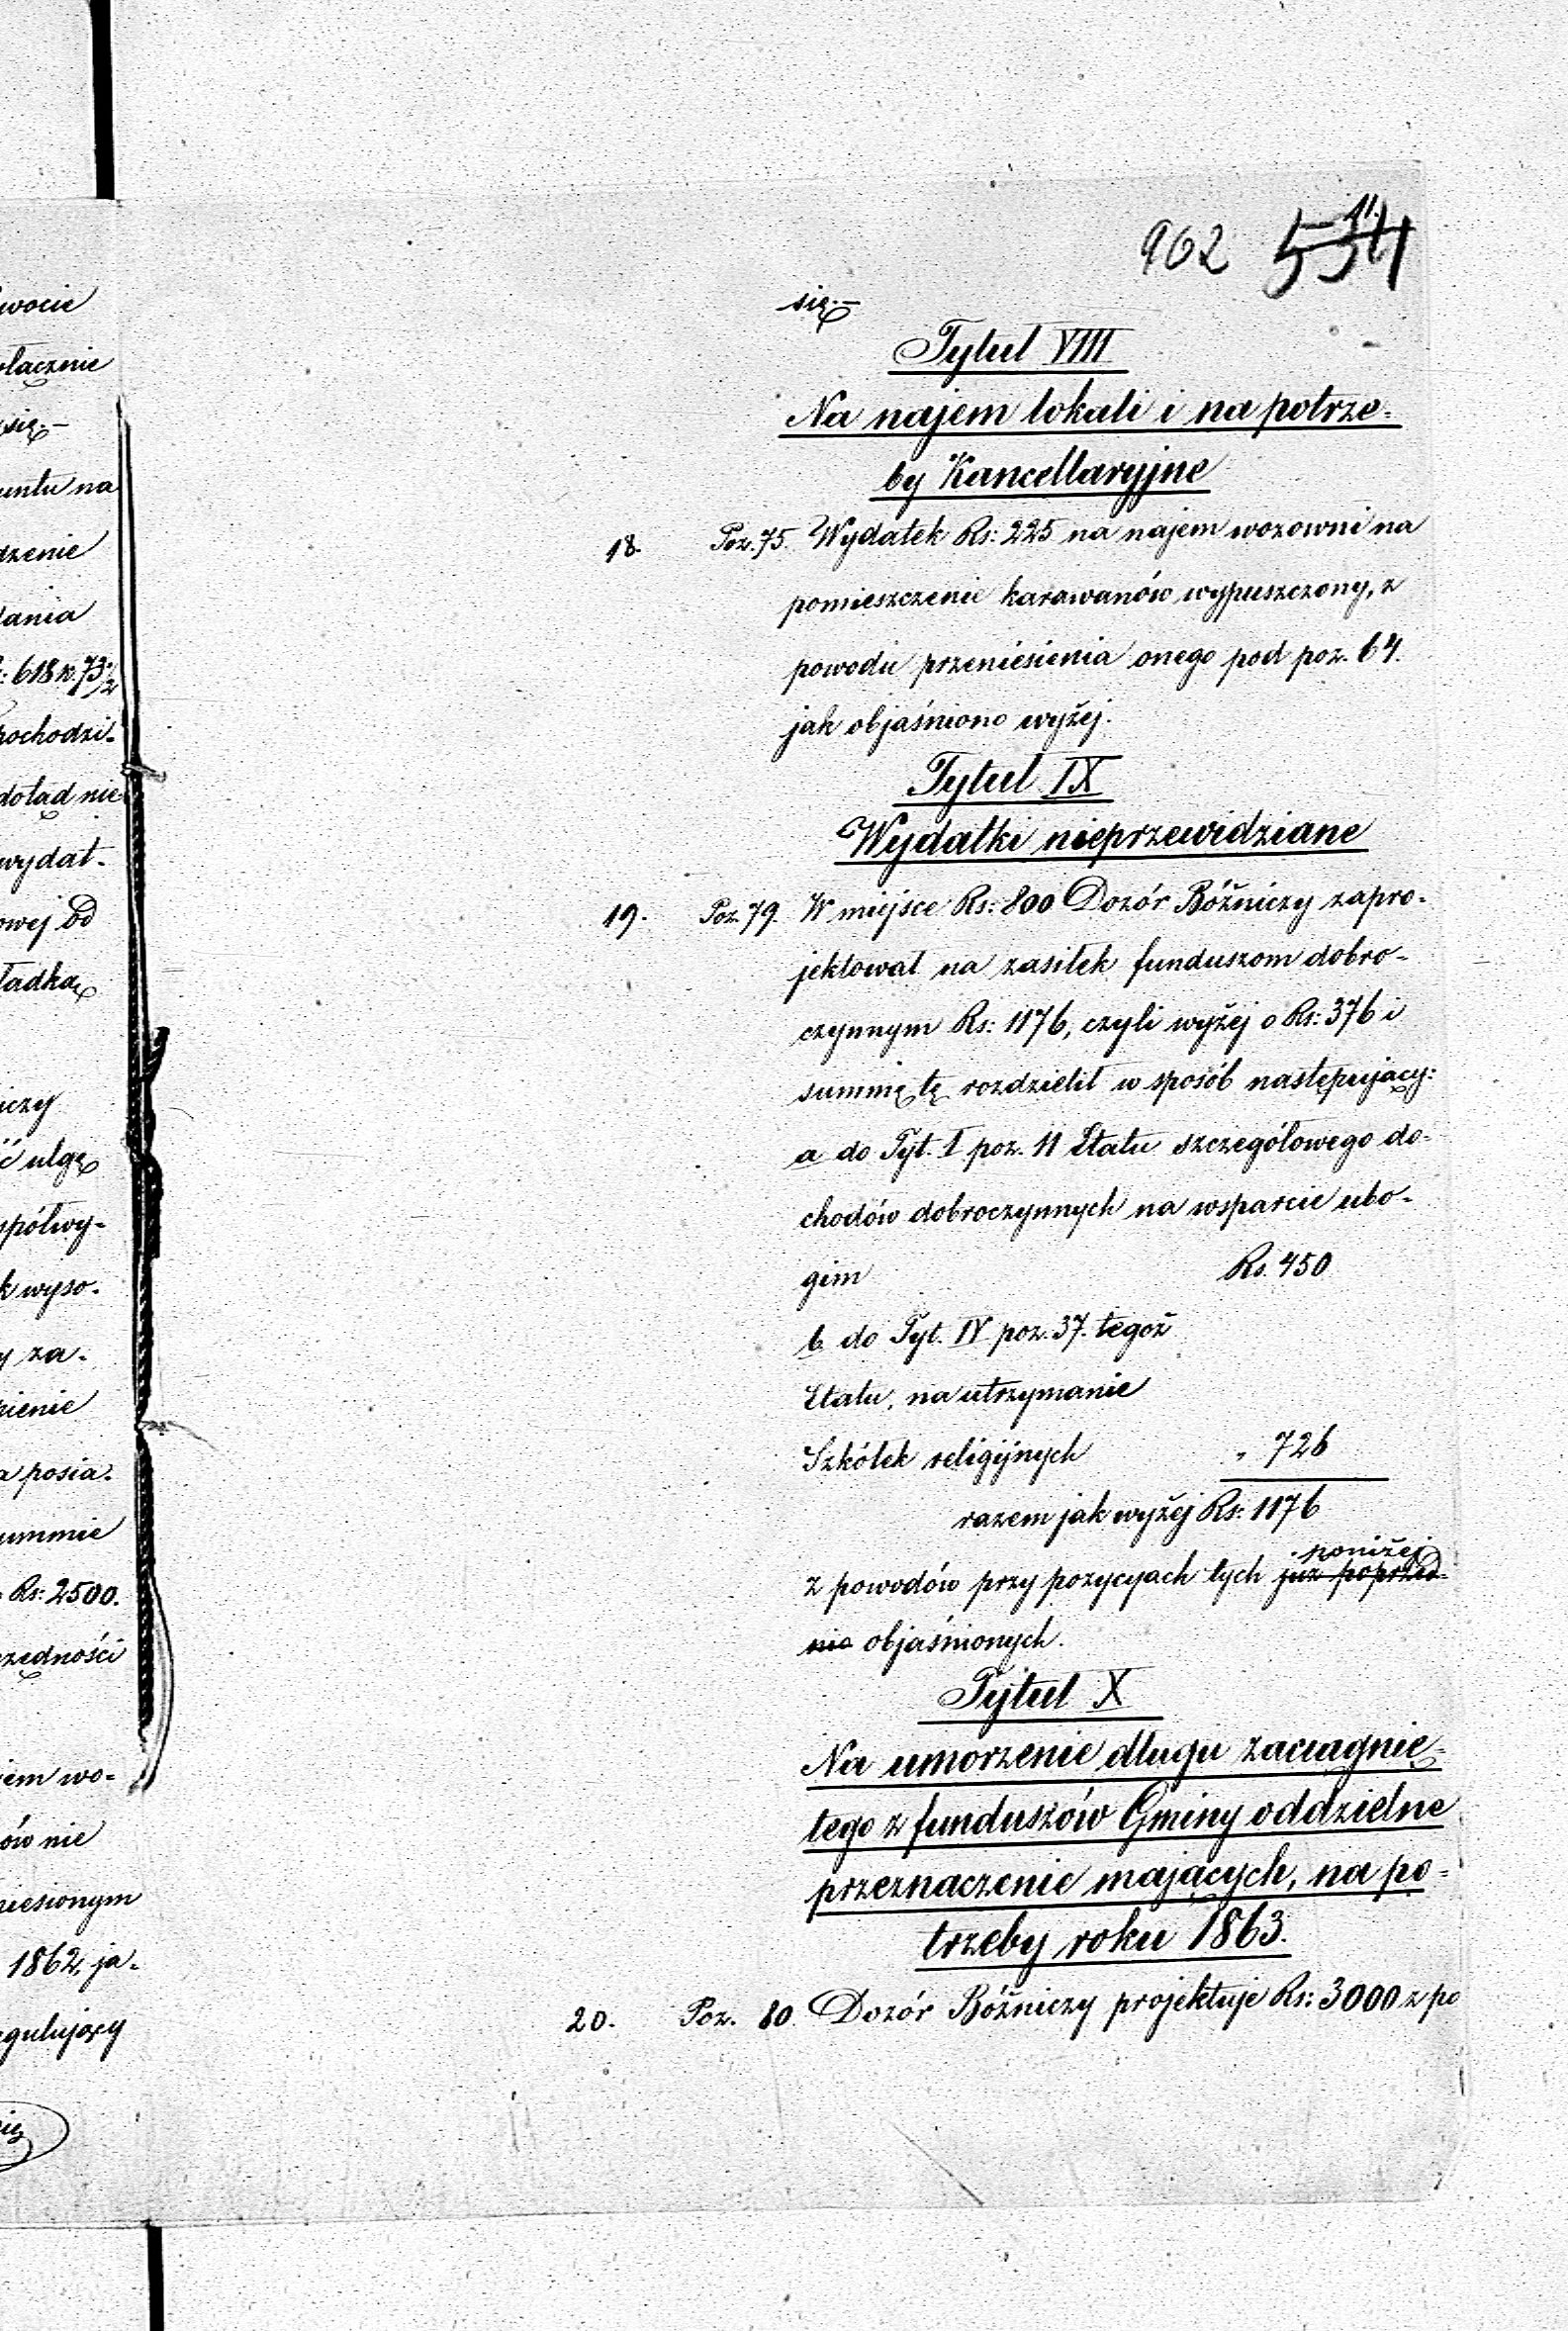 wocie
łącznie
się.–
untu na
dzenie
dania
: 618 k. 73 1/2
pochodzi-
dotąd nie
wydat-
owej od
ładka
iczy
ć ulgę
spółwy-
k wyso-
y za-
pienie
a posia-
summie
Rs: 2500.
zędności
jem wo-
ów nie
niesionym
1862, ja-
egulujący
962 534
11.
się.–
Tytuł VIII
Na najem lokali i na potrze-
by Kancellaryjne
18. Poz. 75. Wydatek Rs: 225 na najem wozowni na
pomieszczenie karawanów wypuszczony, z
powodu przeniesienia onego pod poz. 64.
jak objaśniono wyżej.
Tytuł IX
Wydatki nieprzewidziane
19. Poz. 79. W miejsce Rs: 800 Dozór Bóżniczy zapro-
jektował na zasiłek funduszom dobro-
czynnym Rs: 1176, czyli wyżej o Rs: 376 i
summę tę rozdzielił w sposób następujący:
a do Tyt. I poz. 11 Etatu szczegółowego do-
chodów dobroczynnych na wsparcie ubo-
gim Rs. 450
b do Tyt. IV poz. 37. tegoż
Etatu, na utrzymanie
Szkółek religijnych " 726
razem jak wyżej Rs: 1176
poniżej
z powodów przy pozycyach tych już poprzed-
nio objaśnionych.
Tytuł X
Na umorzenie długu zaciągnię-
tego z funduszów Gminy oddzielne
przeznaczenie mających, na po-
trzeby roku 1863.
20. Poz. 80. Dozór Bóżniczy projektuje Rs: 3000 z po